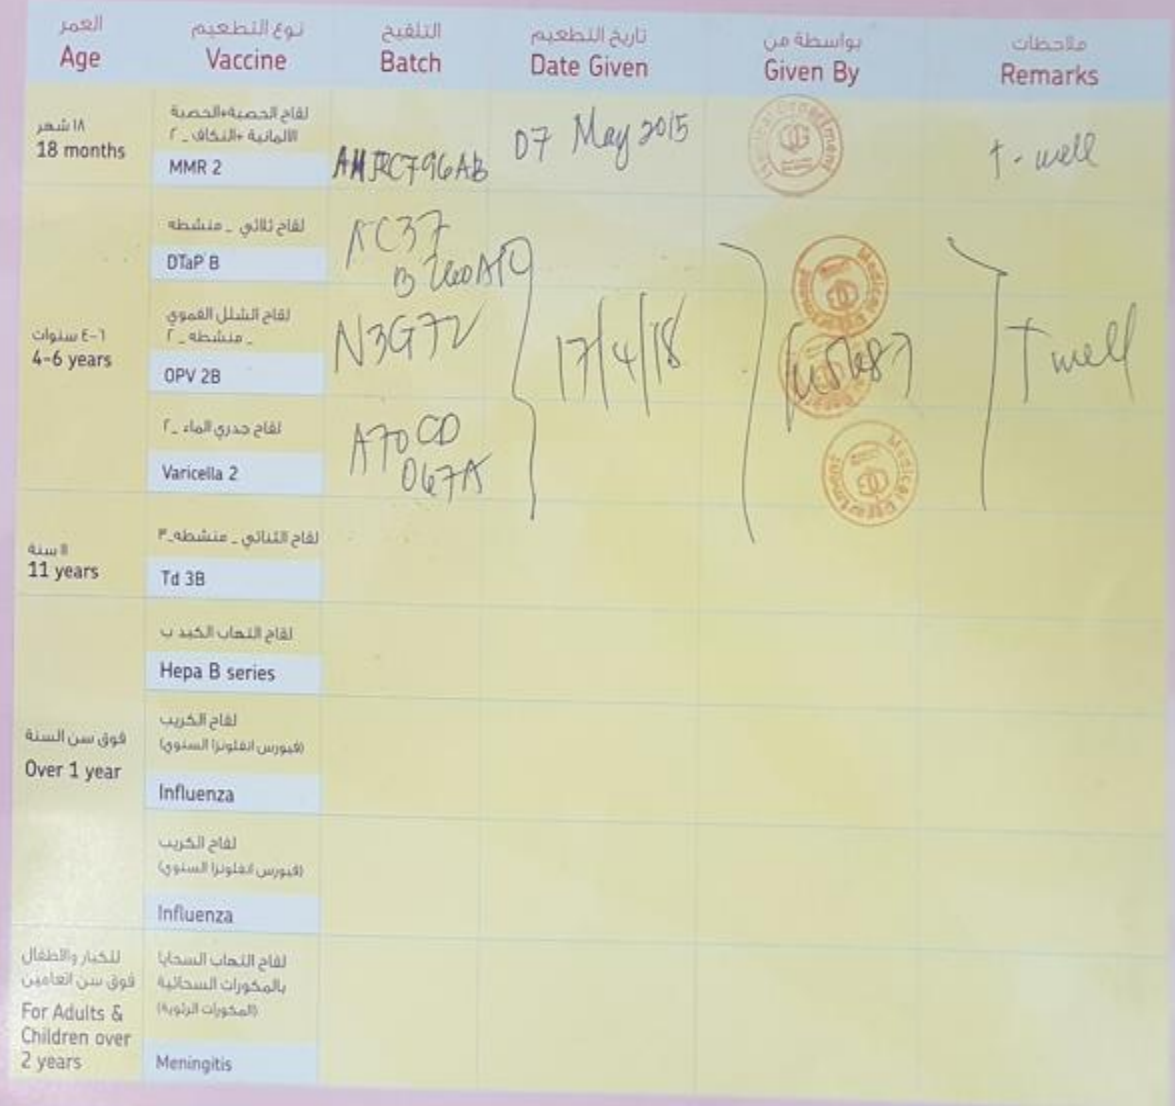 العمر
Age
نوع التطعيم
Vaccine
التلقيح
Batch
تاريخ التطعيم
Date Given
بواسطة من
Given By
ملاحظات
Remarks
١٨ شهر
18 months
لقاح الحصبة+الحصبة
الالمانية +النكاف _ ٢
MMR 2
07 May 2015
T - well
٤-٦ سنوات
4-6 years
لقاح ثلاثي _ منشطه
DTaP B
لقاح الشلل الفموي
_ منشطه _ ٢
OPV 2B
N3G72V
لقاح جدري الماء _٢
Varicella 2
A70CD
067A
17/4/18
T well
١١ سنة
11 years
لقاح الثنائي _ منشطه_٣
Td 3B
فوق سن السنة
Over 1 year
لقاح التهاب الكبد ب
Hepa B series
لقاح الكريب
(فيورس انفلونزا السنوي)
Influenza
لقاح الكريب
(فيورس انفلونزا السنوي)
Influenza
للكبار والاطفال
فوق سن العامين
For Adults &
Children over
2 years
لقاح التهاب السحايا
بالمكورات السحائية
(المكورات الرئوية)
Meningitis